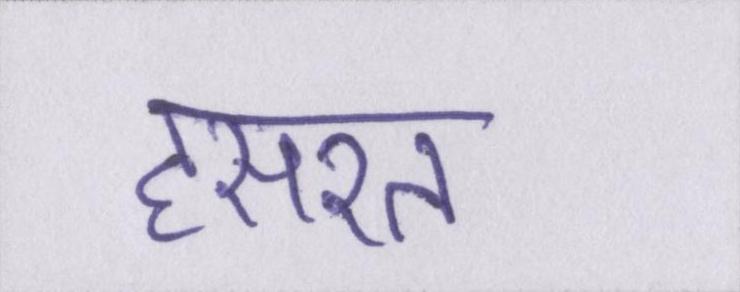 हसरत